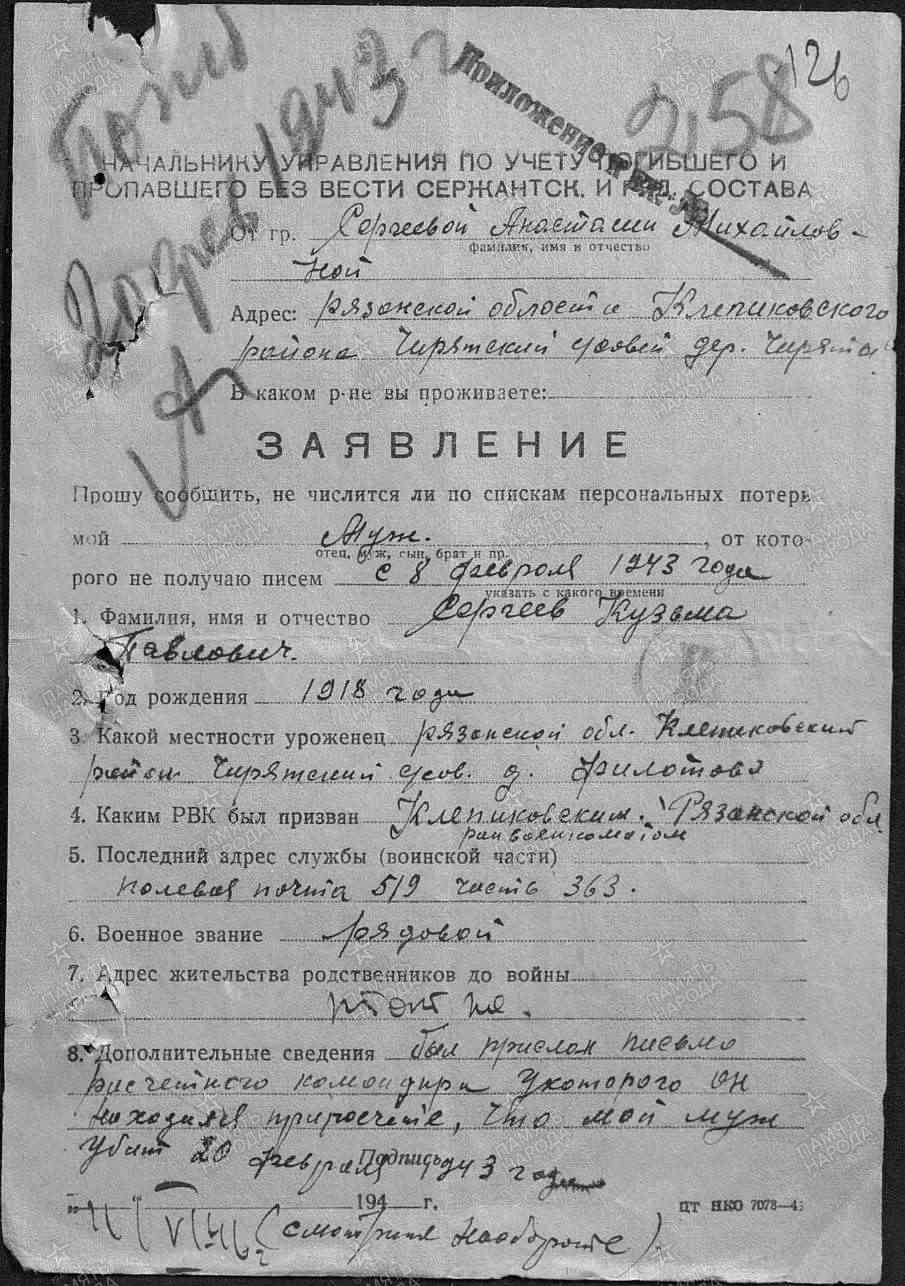 126
258
1943 г
Приложение
НАЧАЛЬНИКУ УПРАВЛЕНИЯ ПО УЧЕТУ ПОГИБШЕГО И
ПРОПАВШЕГО БЕЗ ВЕСТИ СЕРЖАНТСК. И РЯД. СОСТАВА
От гр. Сергеевой Анастасии Михайлов-
фамилия, имя и отчество
ной
Адрес: рязанской области Клепиковского
района Чирятский дер. Чирята
В каком р-не вы проживаете:
ЗАЯВЛЕНИЕ
Прошу сообщить, не числится ли по спискам персональных потерь
мой Муж. , от кото-
отец, муж, сын, брат и пр.
рого не получаю писем с 8 февроля 1943 года
указать с какого времени
1. Фамилия, имя и отчество Сергеев Кузьма
Павлович.
2. Год рождения 1918 года
3. Какой местности уроженец рязанской обл. Клепиковский
район Чирятский сов. д. Филотово
4. Каким РВК был призван Клепиковским Рязанской обл
райвоенкоматом
5. Последний адрес службы (воинской части)
полевая почта 519 часть 363.
6. Военное звание рядовой
7. Адрес жительства родственников до войны
тот же.
8. Дополнительные сведения был прислан письмо
расчетного командира укоторого он
находился прирасчете, что мой муж
убит 20 февраля 1943 года
Подпись
194 г.
ЦТ НКО 7078—43
(смотрите наоброте)
ПАМЯТЬ НАРОДА